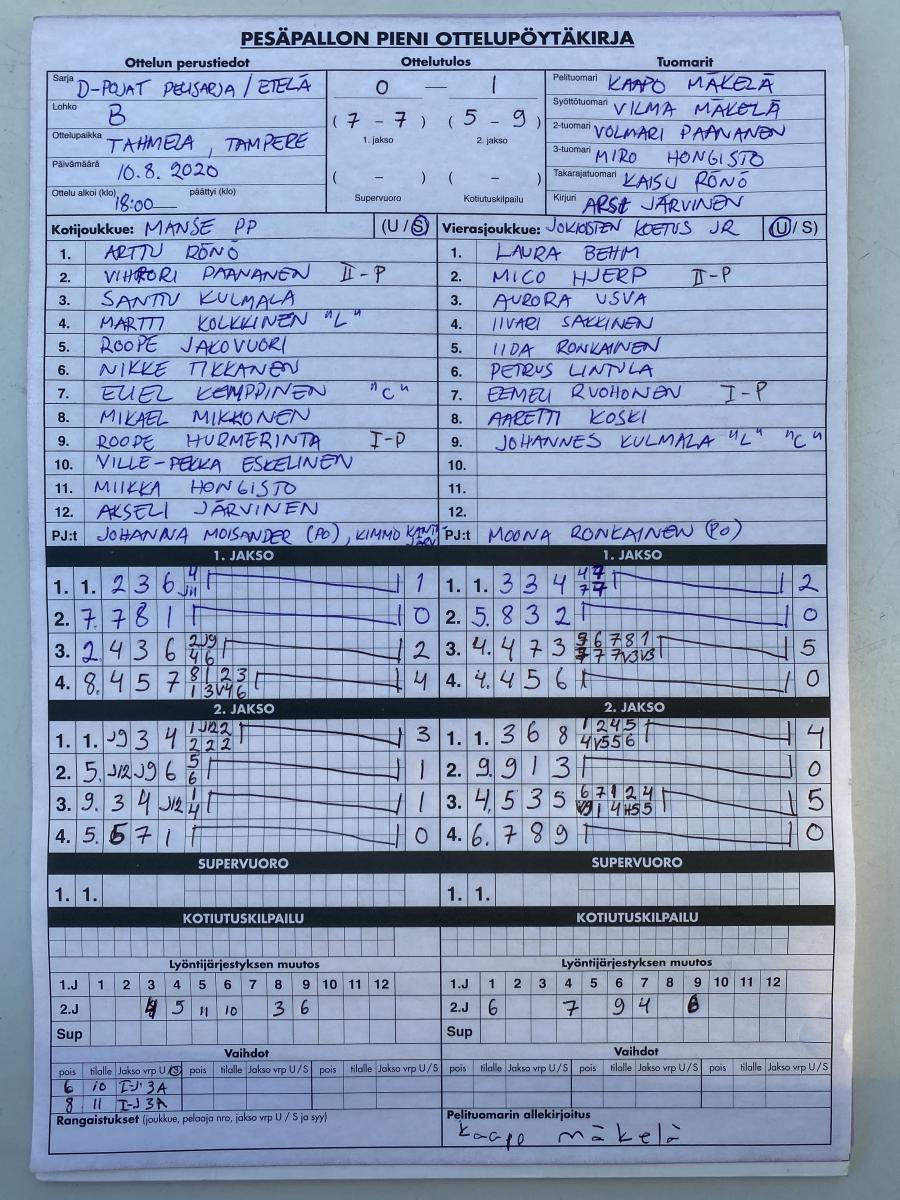 PESÄPALLON PIENI OTTELUPÖYTÄKIRJA
Ottelun perustiedot
Sarja D-POJAT PELISARJA / ETELÄ
Lohko B
Ottelupaikka TAHMELA, TAMPERE
Päivämäärä 10.8.2020
Ottelu alkoi (klo) 18:00 päättyi (klo)
Ottelutulos
0 — 1
(7 - 7) (5 - 9)
1. jakso 2. jakso
( - ) ( - )
Supervuoro Kotiutuskilpailu
Tuomarit
Pelituomari KAAPO MÄKELÄ
Syöttötuomari VILMA MÄKELÄ
2-tuomari VOLMARI PAANANEN
3-tuomari MIRO HONGISTO
Takarajatuomari KAISU RÖNÖ
Kirjuri JÄRVINEN
Kotijoukkue: MANSE PP (U / S)
1. ARTTU RÖNÖ
2. VIHTORI PAANANEN II-P
3. SANTTU KULMALA
4. MARTTI KOLKKINEN "L"
5. ROOPE JAKOVUORI
6. NIKKE TIKKANEN
7. ELIEL KEMPPINEN "C"
8. MIKAEL MIKKONEN
9. ROOPE HURMERINTA I-P
10. VILLE-PEKKA ESKELINEN
11. MIIKKA HONGISTO
12. AKSELI JÄRVINEN
PJ:t JOHANNA MOISANDER (PO), KIMMO
Vierasjoukkue: JOKIOISTEN KOETUS JR (U / S)
1. LAURA BEHM
2. MICO HJERP II-P
3. AURORA USVA
4. IIVARI SAKKINEN
5. IIDA RONKAINEN
6. PETRUS LINTULA
7. EEMELI RUOHONEN I-P
8. AARETTI KOSKI
9. JOHANNES KULMALA "L" "C"
10.
11.
12.
PJ:t MOONA RONKAINEN (PO)
1. JAKSO
1. 1. 2 3 6 4 J11 1
2. 7. 7 8 1 0
3. 2. 4 3 6 2 J9 4 6 2
4. 8. 4 5 7 8 1 2 3 1 3 V4 6 4
1. JAKSO
1. 1. 3 3 4 4 7 7 7 2
2. 5. 8 3 2 0
3. 4. 4 7 3 6 7 8 1 7 7 V3 V3 5
4. 4. 4 5 6 0
2. JAKSO
1. 1. J9 3 4 1 J12 2 2 2 2 3
2. 5. J12 J9 6 5 6 1
3. 9. 3 4 J12 1 4 1
4. 5. 6 7 1 0
2. JAKSO
1. 1. 3 6 8 1 2 4 5 4 V5 5 6 4
2. 9. 9 1 3 0
3. 4. 5 3 5 6 7 1 2 4 V9 1 4 H5 5 5
4. 6. 7 8 9 0
SUPERVUORO
1. 1.
SUPERVUORO
1. 1.
KOTIUTUSKILPAILU
KOTIUTUSKILPAILU
Lyöntijärjestyksen muutos
1.J 1 2 3 4 5 6 7 8 9 10 11 12
2.J 4 5 11 10 3 6
Sup
Lyöntijärjestyksen muutos
1.J 1 2 3 4 5 6 7 8 9 10 11 12
2.J 6 7 9 4 6
Sup
Vaihdot
pois tilalle Jakso vrp U/S pois tilalle Jakso vrp U/S pois tilalle Jakso vrp U/S
6 10 I-J 3A
8 11 I-J 3A
Vaihdot
pois tilalle Jakso vrp U/S pois tilalle Jakso vrp U/S pois tilalle Jakso vrp U/S
Rangaistukset (joukkue, pelaaja nro, jakso vrp U / S ja syy)
Pelituomarin allekirjoitus
Kaapo mäkelä